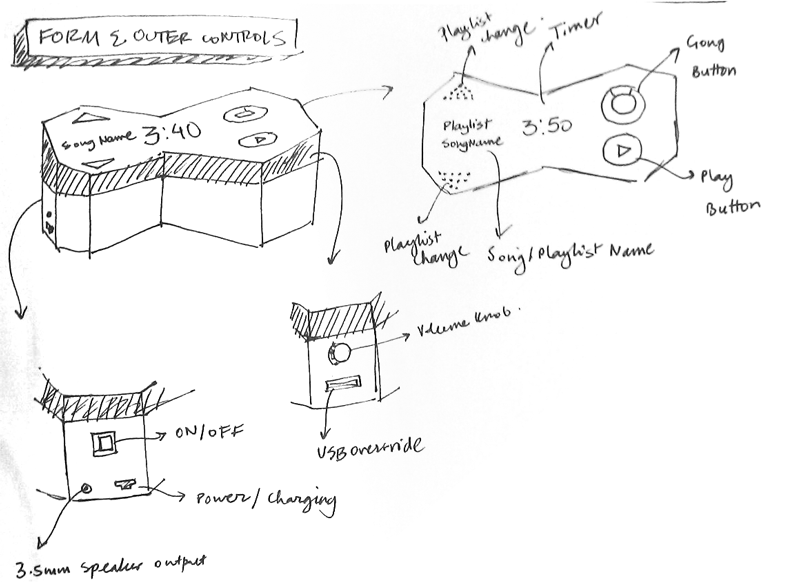 FORM & OUTER CONTROLS
Song Name 3:40
Playlist
change.
Timer
Gong
Button
Playlist
SongName
3:50
Play
Button
Playlist
change
Song/Playlist Name
Volume Knob.
USB override
ON/OFF
Power/Charging
3.5mm Speaker output